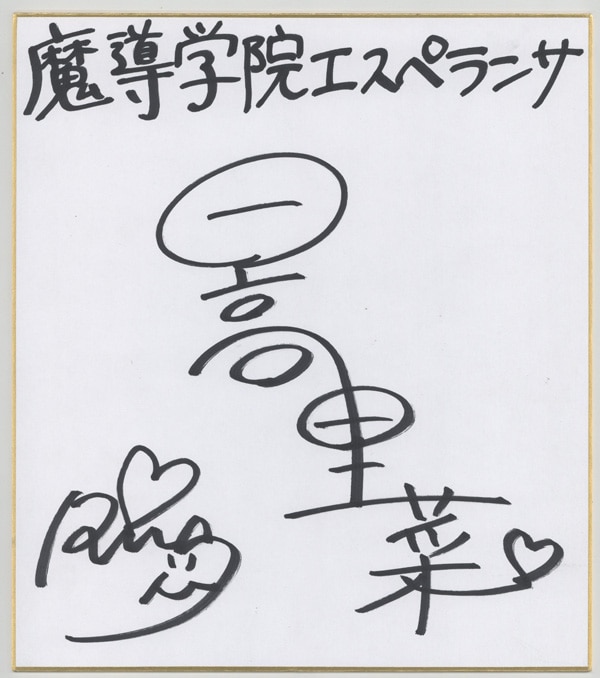 魔導学院エスペランサ
日高里菜
Rina